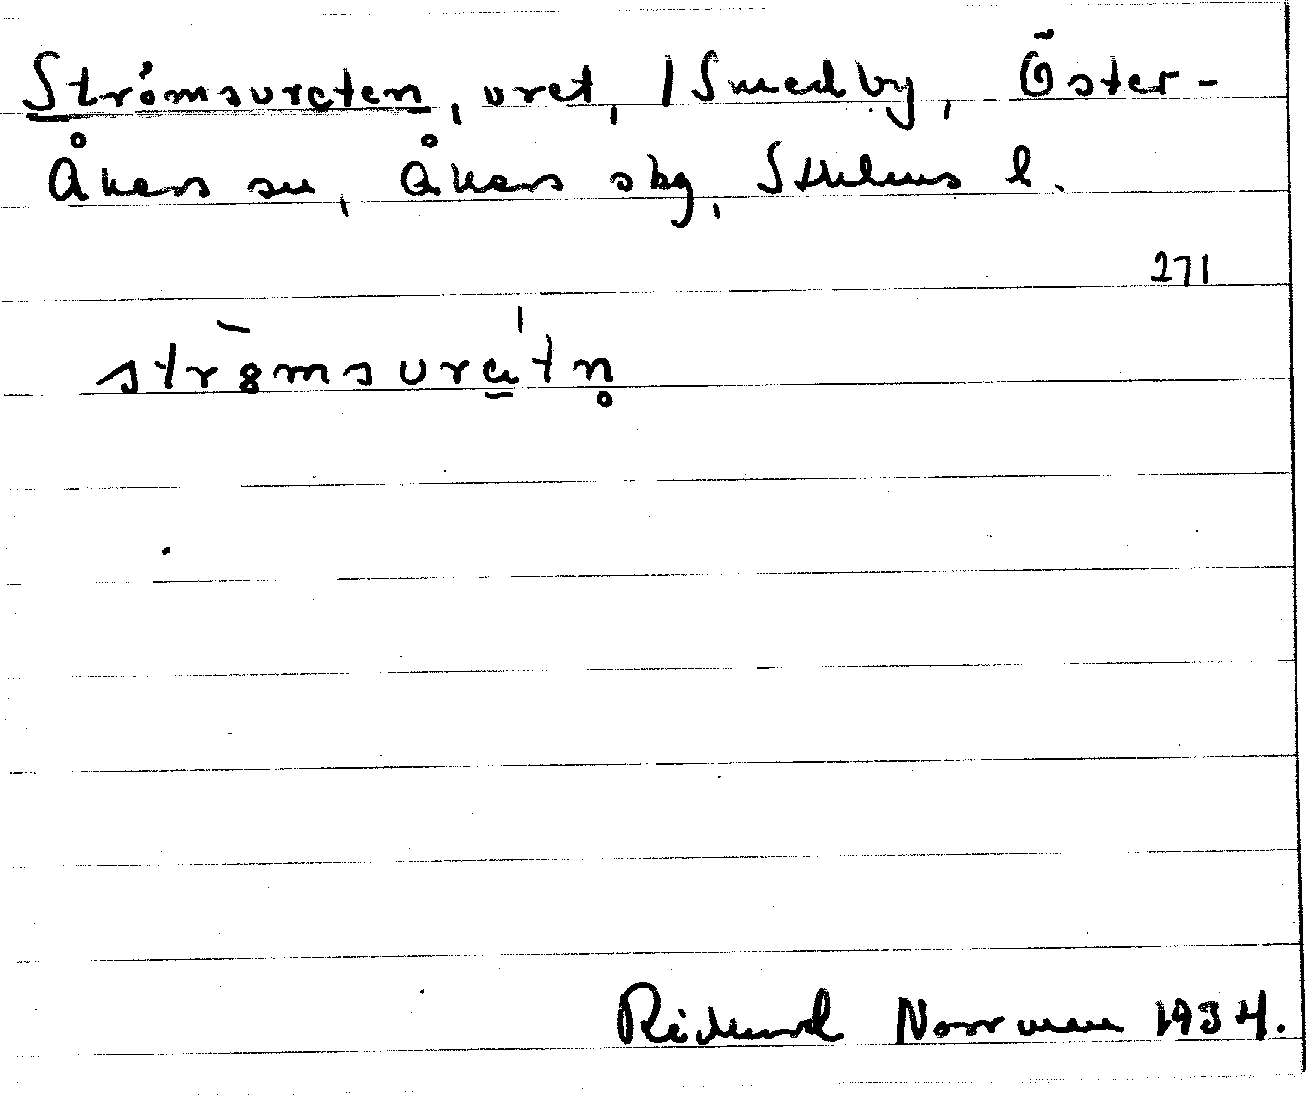 Strömsvreten, vret, i Smedby, Öster-
Åkers sn, Åkers skg, Sthlms l.
271
strömsvrätn̥
Rickard Norrman 1934.